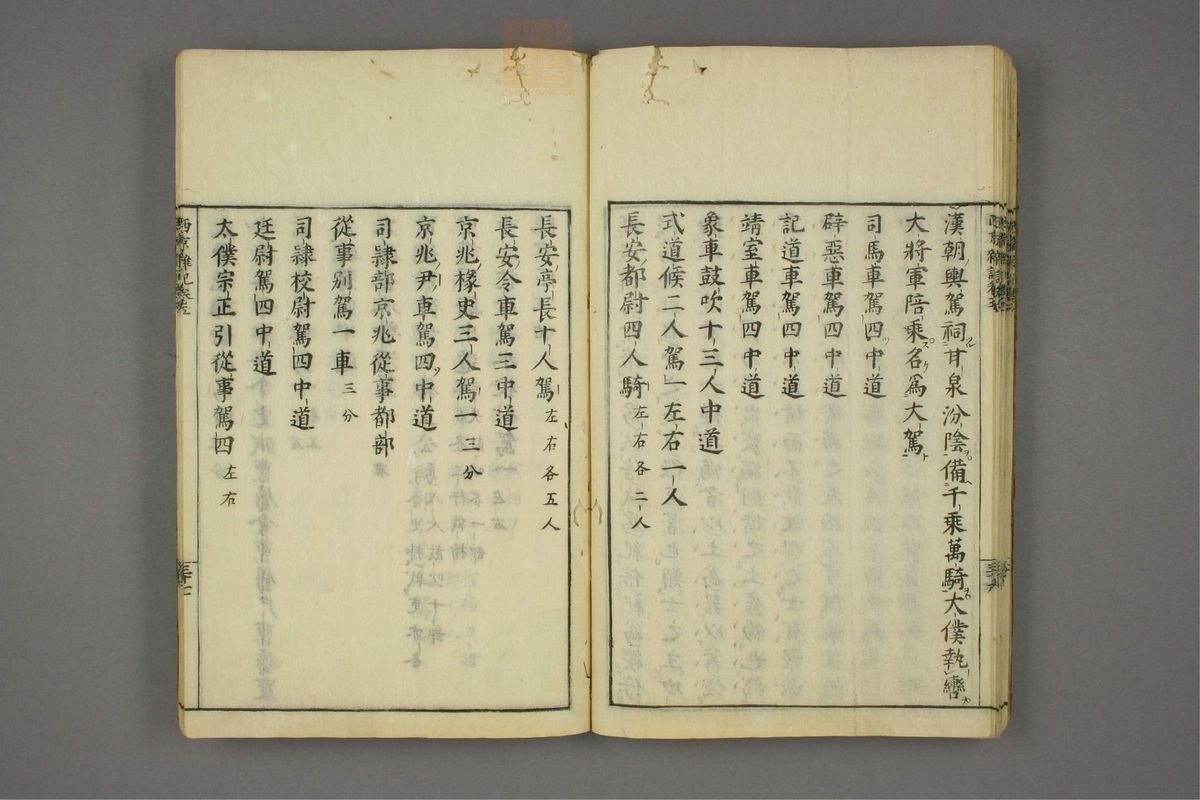 漢朝輿駕祠甘泉汾陰備千乘萬騎大僕執轡
大將軍陪乘名爲大駕
司馬車駕四中道
辟惡車駕四中道
記道車駕四中道
靖室車駕四中道
象車鼓吹十三人中道
式道候二人駕一左右一人
長安都尉四人騎左右各二人
長安亭長十人駕左右各五人
長安令車駕三中道
京兆掾史三人駕一三分
京兆尹車駕四中道
司隷部京兆從事都部
從事别駕一車三分
司隷校尉駕四中道
廷尉駕四中道
太僕宗正引從事駕四左右
西京雜記卷五